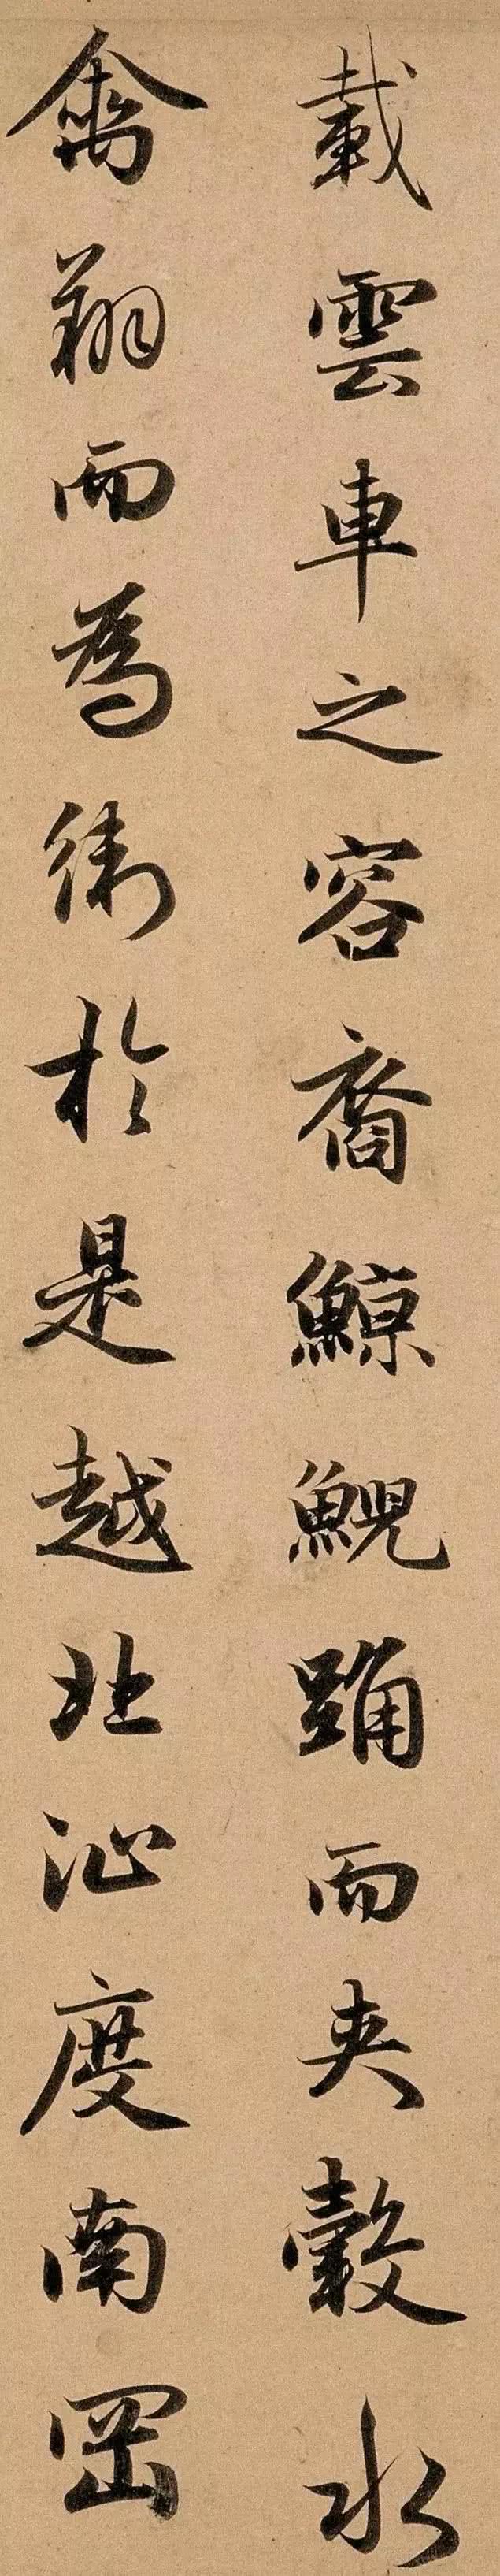 載雲車之容裔鯨鯢踊而夾轂水
禽翔而為衛於是越北沚度南岡